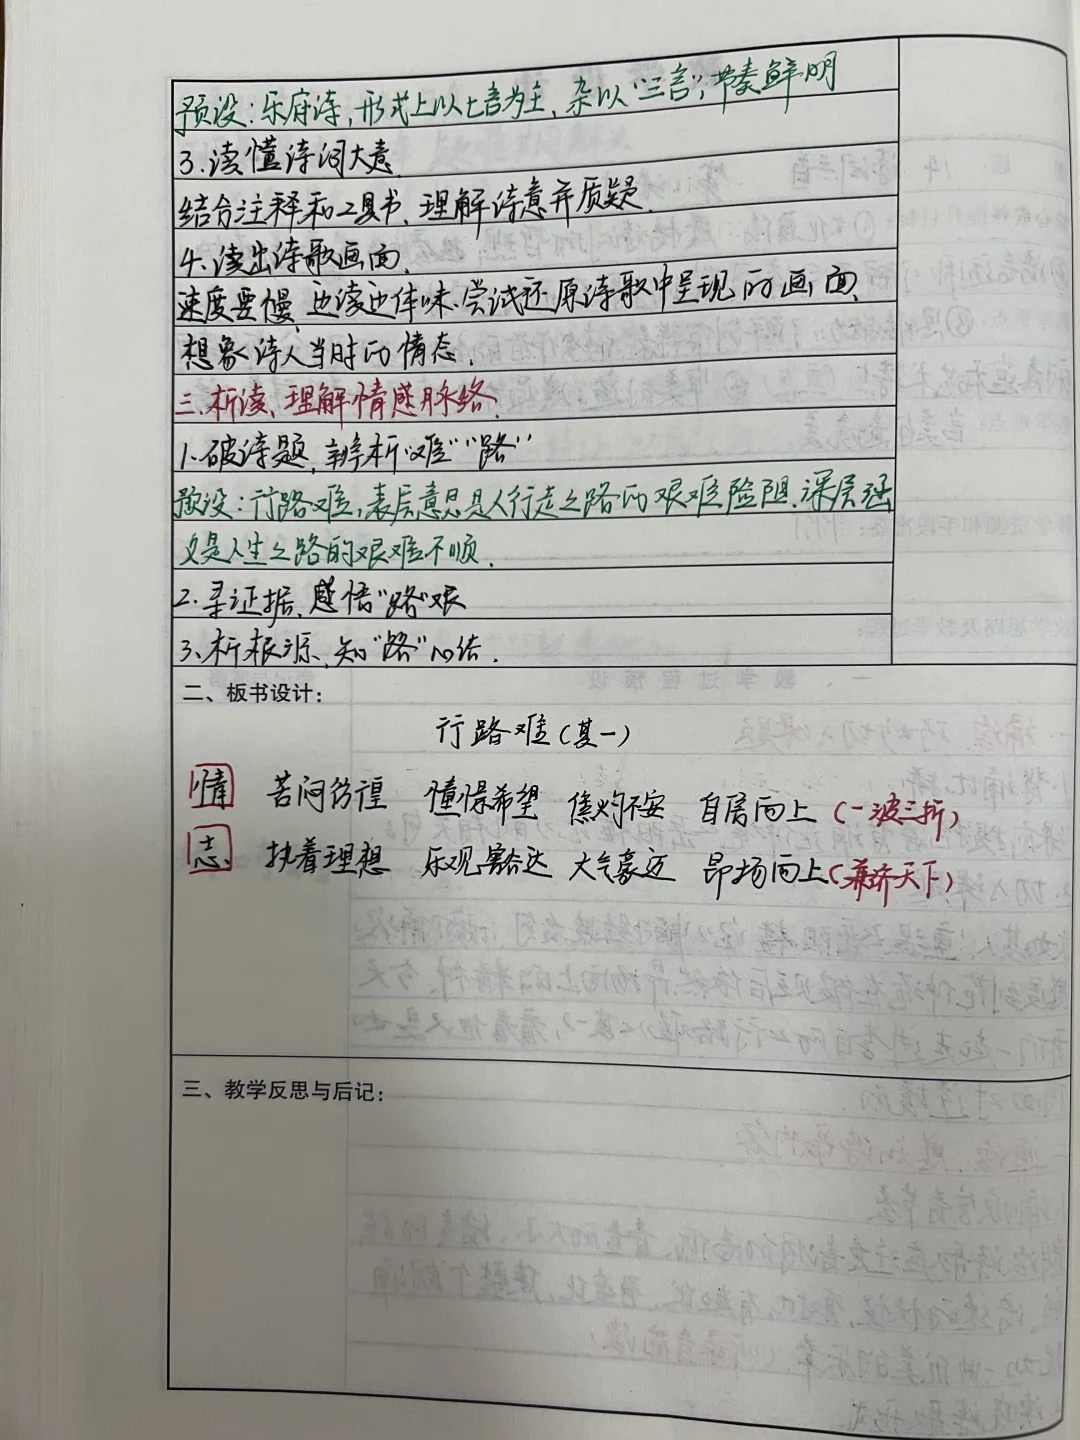 预设：乐府诗，形式上以七言为主，杂以"三言"，节奏鲜明
3.读懂诗词大意.
结合注释和工具书.理解诗意并质疑.
4.读出诗歌画面.
速度要慢，边读边体味.尝试还原诗歌中呈现的画面.
想象诗人当时的情态.
三.析读，理解情感脉络.
1.破诗题，辨析"难""路"
预设：行路难，表层意思是人行走之路的艰难险阻.深层涵
义是人生之路的艰难不顺.
2.寻证据，感悟"路"艰
3.析根源，知"路"心结.
二、板书设计：
行路难（其一）
情 苦闷彷徨 憧憬希望 焦灼不安 自居向上（一波三折）
志 执着理想 乐观豁达 大气豪迈 昂扬向上（兼济天下）
三、教学反思与后记：